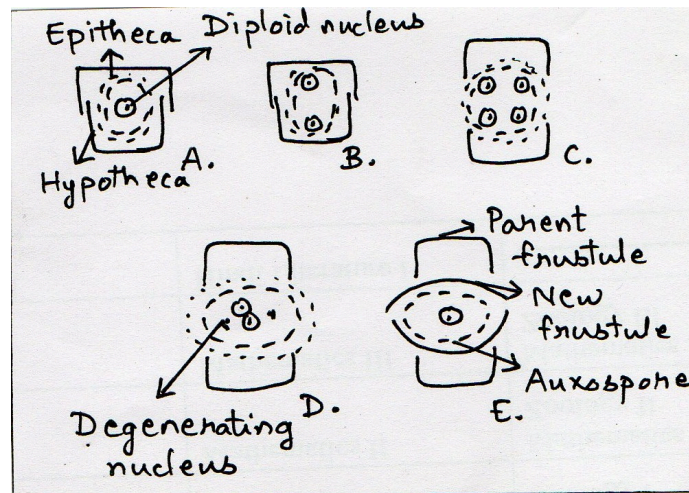 Epitheca
Diploid nucleus
Hypotheca
A.
B.
C.
Parent
frustule
New
frustule
Auxospore
Degenerating
nucleus
D.
E.